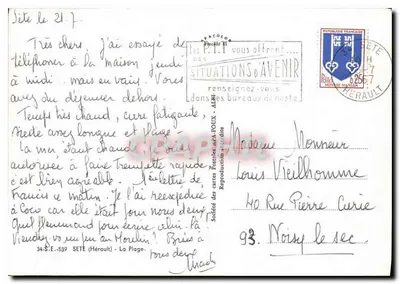 Sète le 21.7
Très chers, j'ai essayé de
téléphoner à la maison jeudi
à midi. mais en vain. Vous
avez du déjeuner dehors.
Temps très chaud, cure fatigante,
sieste assez longue et plage.
La mer étant chaude
autorisée à faire trempette rapide,
c'est bien agréable.
Francis ce matin. Je l'ai réexpédiée
à Coco car elle était pour nous deux.
Quel flemmard pour écrire celui-là
Viendrez vs un peu au Moulin? Bises à
tous deux
34-S.E.-539 SETE (Hérault) - La Plage
Société des cartes Postales APA-POUX - ALBI
Reproduction interdite
APACOLOR
les P.T.T vous offrent
des
SITUATIONS D'AVENIR
renseignez-vous
dans les bureaux de poste
SETE
HERAULT
REPUBLIQUE FRANÇAISE
0,25
MONT-DE-MARSAN
Madame Monsieur
Louis Vieilhomme
40 Rue Pierre Curie
93. Noisy le sec